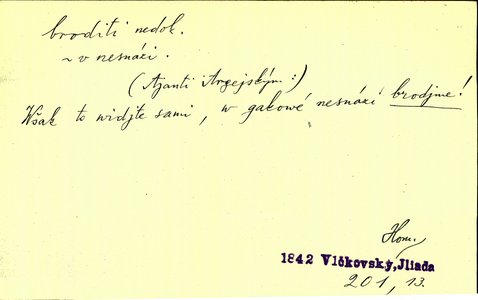 broditi nedok.
~ v nesnázi.
(Ajanti Argejským:)
Wšak to widjte sami, w gakowé nesnázi brodjme!
Hom.
1842 Vlčkovský, Jliada
201, 13.